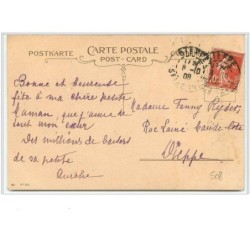 CARTE POSTALE
POSTKARTE POST-CARD
DIEPPE
08
Bonne et heureuse
fête à ma chère petite
maman, que j'aime de
tout mon cœur
Des millions de baisers
de sa petite
Aurélie
Madame Fanny Ryders
Rue
Dieppe
508